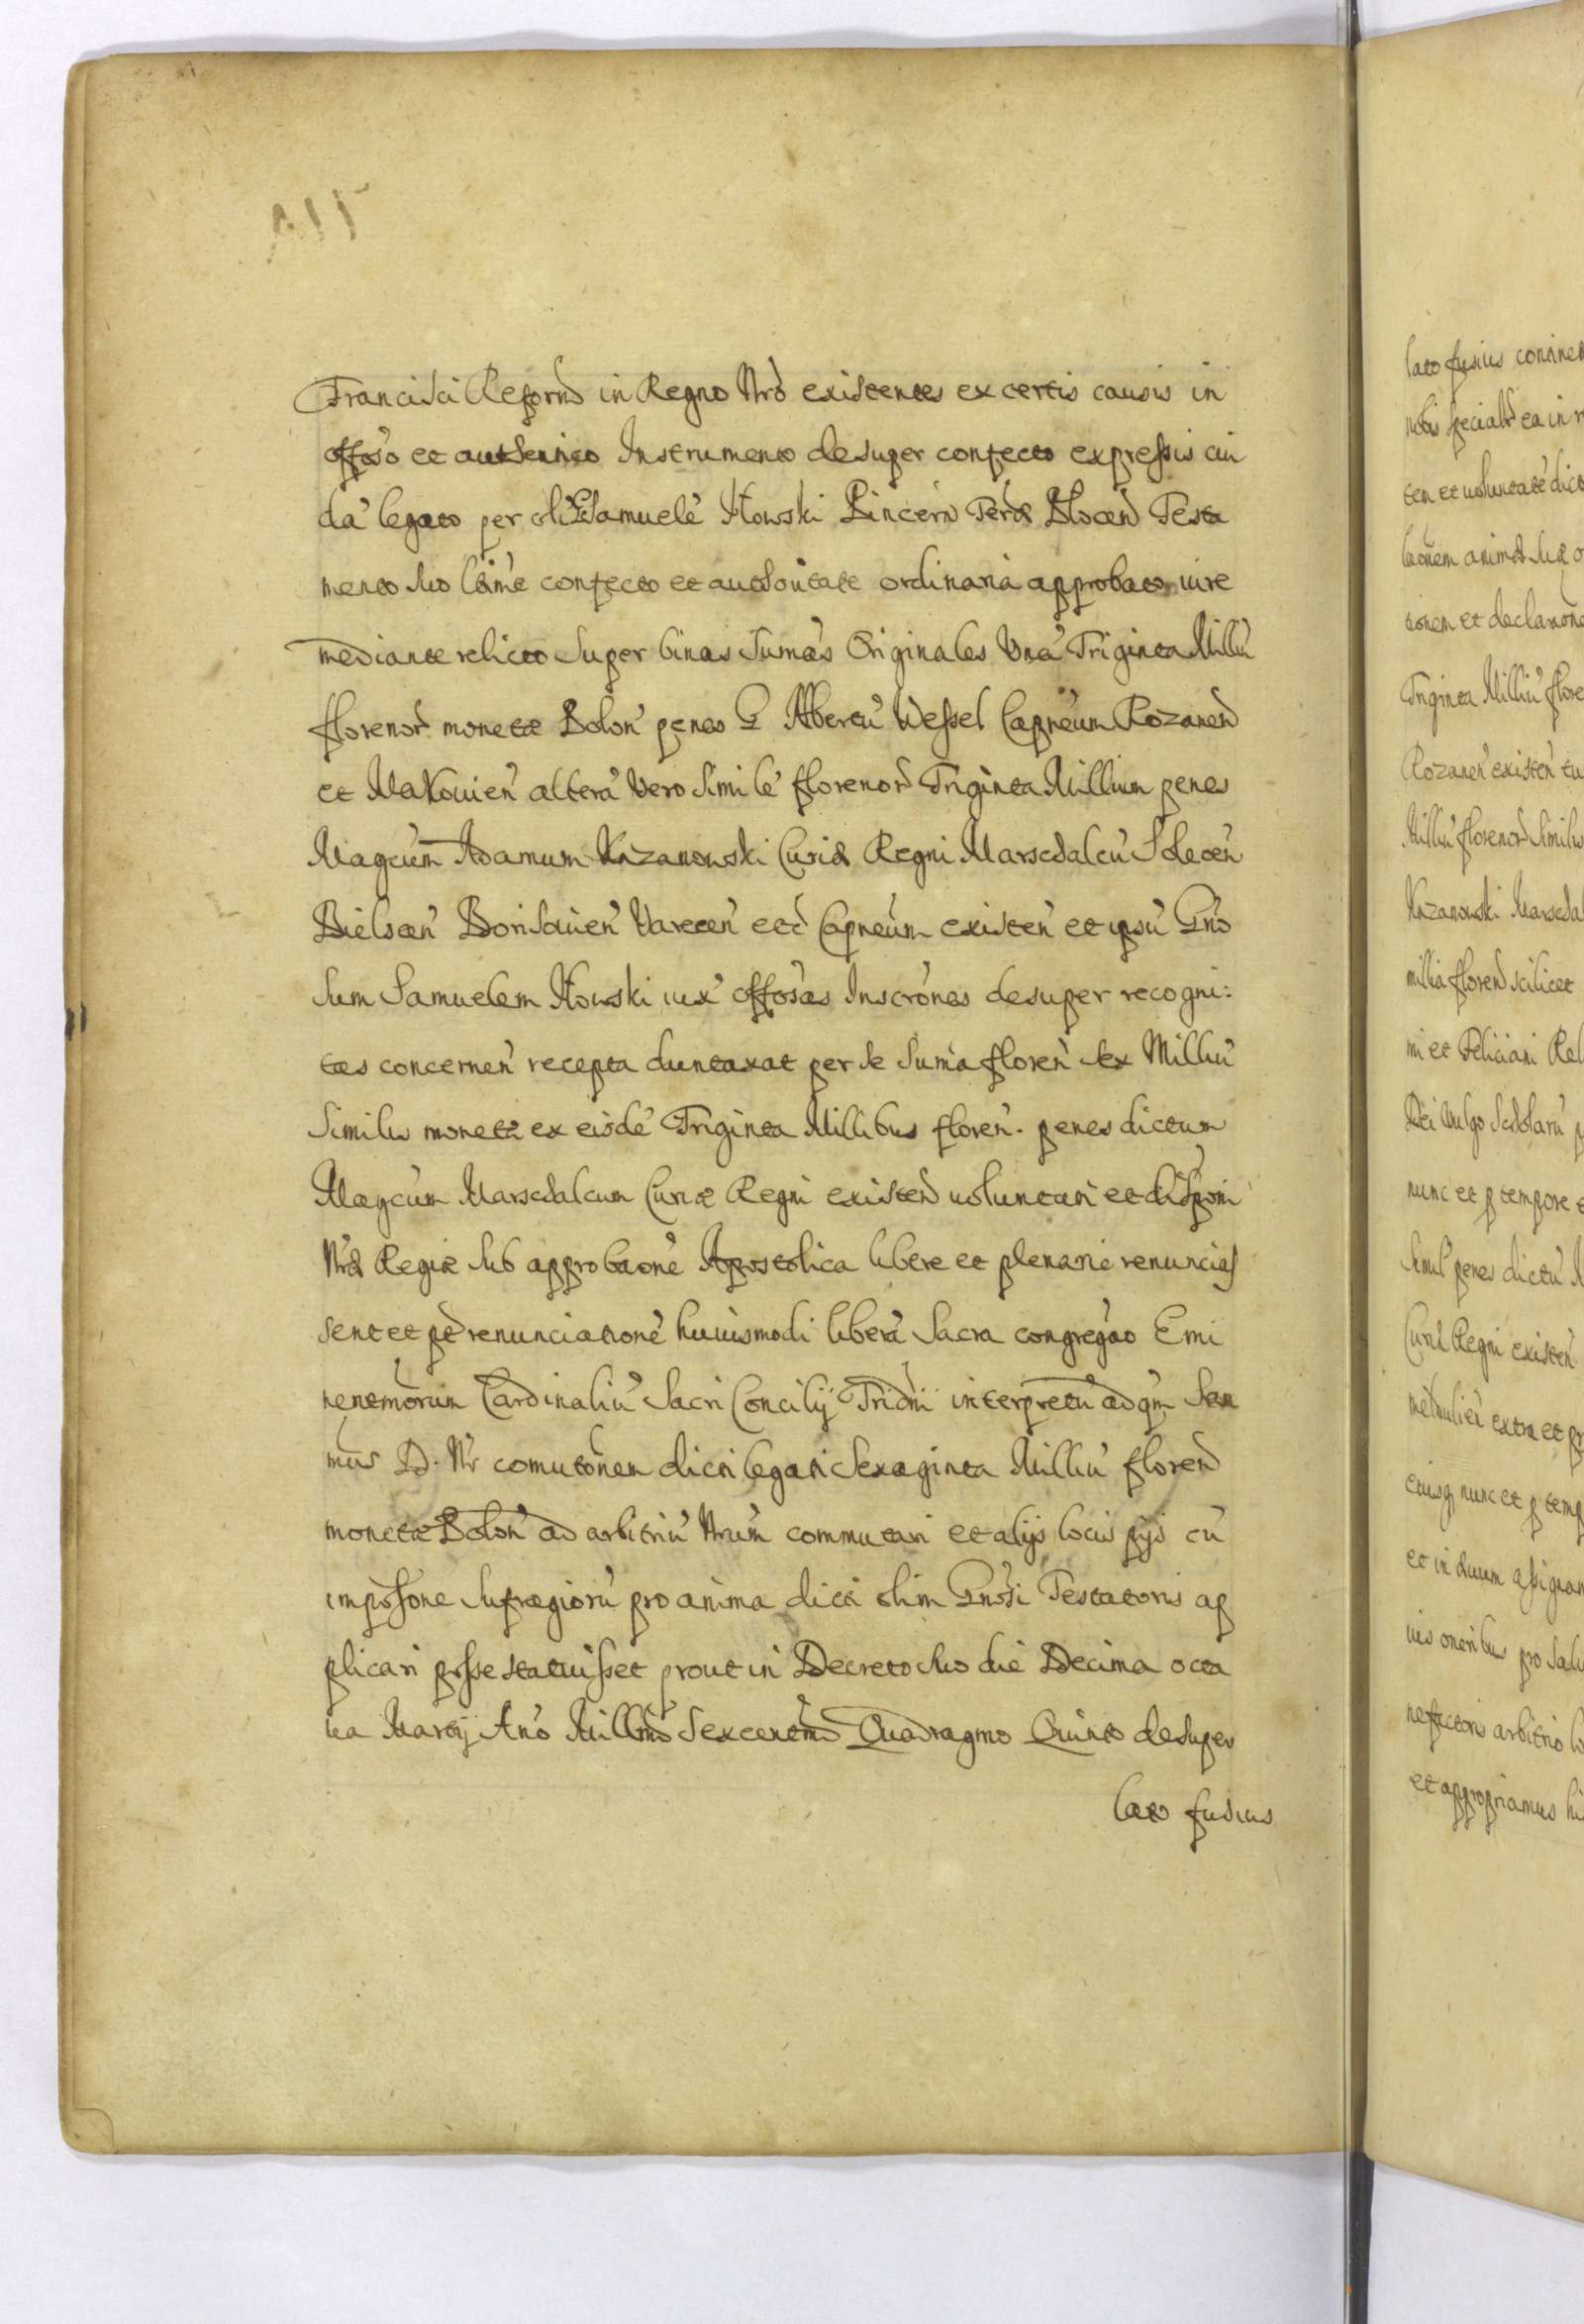 Francisci Reform in Regno Nro existentes ex certis causis in
offoso et authentico Instrumento desuper confecto expressis cui
da legato per oli G Samuele Howski Pincern Terræ Plocen Testa
mento suo ltime confecto et authoritate ordinaria approbato iure
mediante relicto super binas Sumas Originales Una Triginta Milliu
florenor monetæ Polon penes G Albertu Wessel Capneum Rozanen
et Makovien altera vero simile florenor Triginta Millium penes
Magcum Adamum Kazanowski Curiæ Regni Marschalcu Solecen
Bielscen Borisovien Varecen etc Capneum existen et ipsu Gno
sum Samuelem Howski iux offosas Inscrones desuper recogni:
tas concernen recepta duntaxat per se suma floren sex Milliu
similis monetæ ex eisde Triginta Millibus floren. penes dictum
Magcum Marschalcum Curiæ Regni existen voluntari et disponi
Nræ Regiæ sub approbaone Apostolica libere et plenarie renuncias
sent et pt renunciatione huiusmodi libera Sacra congregao Emi
nentmorum Cardinaliu Sacri Concilij Tridni interpretu ad qm San
mus D. Nr comutonem dicti legati Sexaginta Milliu floren
monetæ Polon ad arbitriu Nrum commutari et alijs locis pijs cu
imposone sufragioru pro anima dicti olim Gnosi Testatoris ap
plicari posse statuisset prout in Decreto suo die Decima octa
va Martij Ano Millmo Sexcentmo Quadragmo Quinto desuper
lato fusius
lato fusius
nobis speciali ea in
ten et voluntate dict
laonem animæ suæ
tionem et declaraone
Triginta Milliu flore
Rozanen existen
Milliu florenor similis
Kazanowski Marscha
millia floren scilicet
mi et Feliciani Rel
Dei vulgo Scholaru
nunc et p tempore
simil penes dictu
Curiæ Regni existen
extra et
eiusq nunc et p temp
et in duum assignan
iis oneribus pro salu
nefactoris arbitrio
et appropriamus